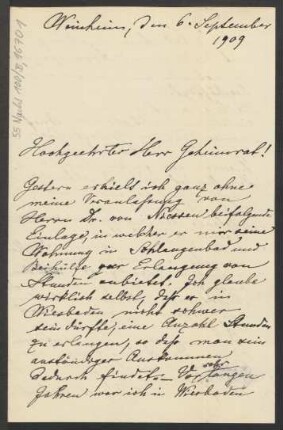 Weinheim, den 6. September
1909
Hochgeehrter Herr Geheimrat!
Gestern erhielt ich ganz ohne
meine Veranlassung von
Herrn Dr. von Niessen beifolgende
Einlage, in welcher er mir eine
Wohnung in Schlangenbad und
Beihülfe zur Erlangung von
Stunden anbietet. Ich glaube
wirklich selbst, daß er in
Wiesbaden nicht schwer
sein dürfte, eine Anzahl Stunden
zu erlangen, so daß man sein
anständiger Auskommen
dadurch findet. Vor
Jahren war ich in Wiesbaden